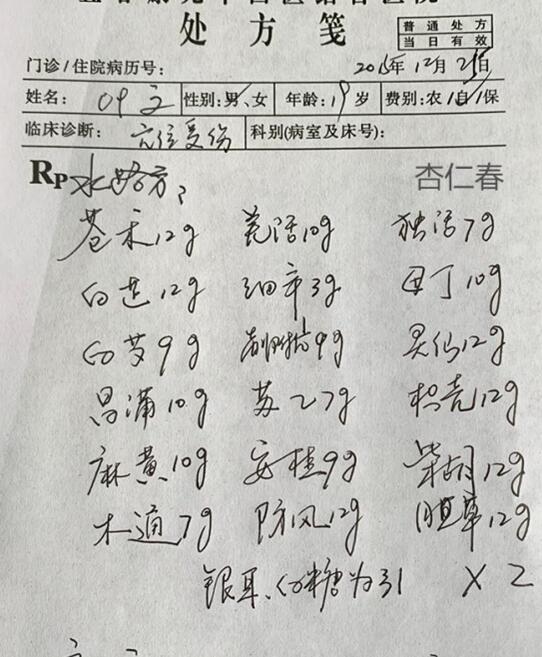 处方笺
普通处方
当日有效
门诊/住院病历号： 2015年12月25日
姓名： 性别：男、女 年龄：19岁 费别：农/自/保
临床诊断：穴位受伤 科别(病室及床号)：
Rp 水路方：
杏仁春
苍术12g 羌活10g 独活7g
白芷12g 细辛3g 母丁10g
白芍9g 9g 灵仙12g
昌蒲10g 苏乙7g 枳壳12g
麻黄10g 安桂9g 柴胡12g
木通7g 防风12g 胆草12g
银耳、白糖为引 ×2